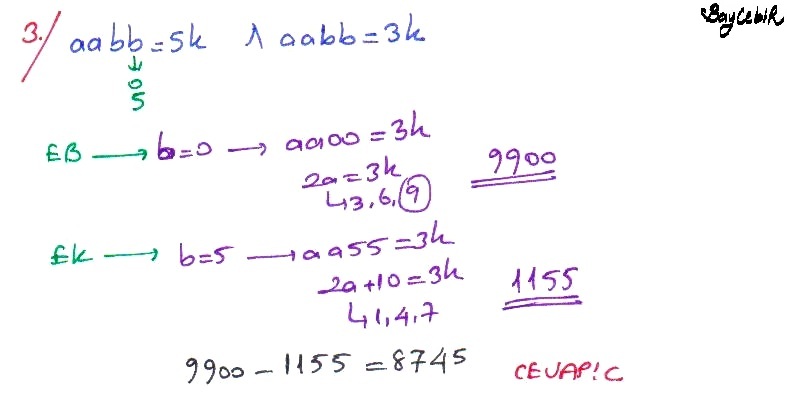 BayCebiR
3./ aabb = 5k ∧ aabb = 3k
↓
0
5
EB → b=0 → aa00 = 3k
2a = 3k
↳3,6,9
9900
EK → b=5 → aa55 = 3k
2a+10 = 3k
↳1,4,7
1155
9900 - 1155 = 8745
CEVAP: C